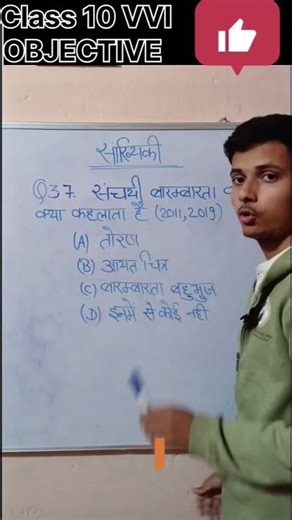 Class 10 VVI
OBJECTIVE
सांख्यिकी
Q37. संचयी बारम्बारता
क्या कहलाता है (2011, 2019)
(A) तोरण
(B) आयत चित्र
(C) बारम्बारता बहुभुज
(D) इनमें से कोई नहीं